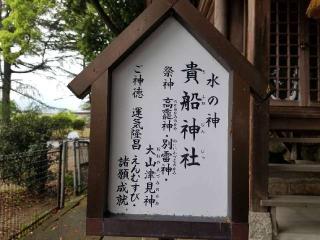 水の神
貴船神社
祭神 高龗神・別雷神・
大山津見神
ご神徳 運気隆昌
えんむすび・
諸願成就。